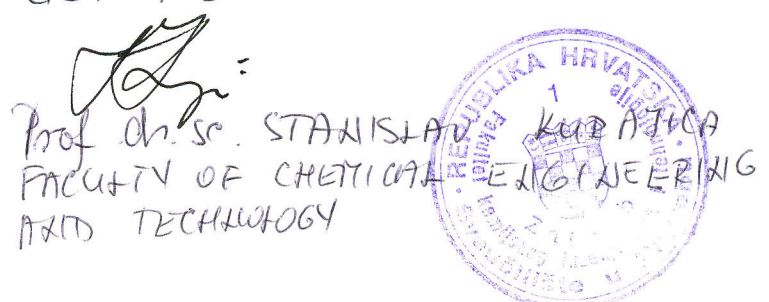 Prof dr. sc. STANISLAV KURAJICA
FACULTY OF CHEMICAL ENGINEERING
AND TECHNOLOGY
REPUBLIKA HRVATSKA
1
Fakultet